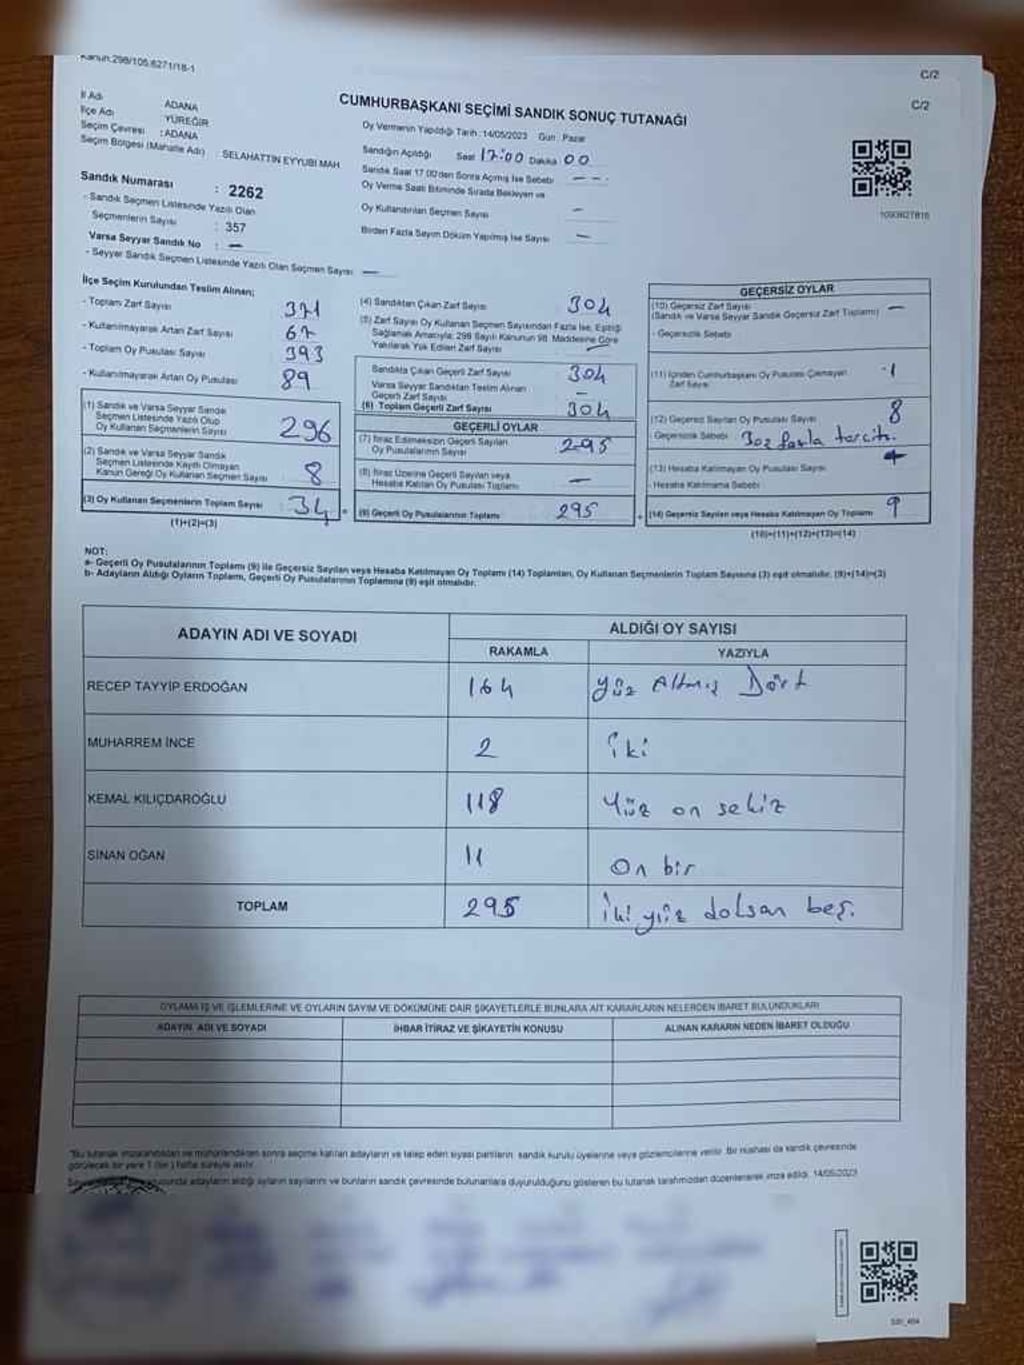 Kanun:298/105;6271/18-1
C/2
C/2
CUMHURBAŞKANI SEÇİMİ SANDIK SONUÇ TUTANAĞI
İl Adı ADANA
İlçe Adı YÜREĞİR
Seçim Çevresi : ADANA
Seçim Bölgesi (Mahalle Adı) : SELAHATTİN EYYUBİ MAH
Sandık Numarası : 2262
- Sandık Seçmen Listesinde Yazılı Olan
Seçmenlerin Sayısı : 357
Varsa Seyyar Sandık No : —
- Seyyar Sandık Seçmen Listesinde Yazılı Olan Seçmen Sayısı —
Oy Vermenin Yapıldığı Tarih : 14/05/2023 Gün : Pazar
Sandığın Açıldığı Saat 17:00 Dakika 00
Sandık Saat 17.00'den Sonra Açılmış İse Sebebi ---
Oy Verme Saati Bitiminde Sırada Bekleyen ve
Oy Kullandırılan Seçmen Sayısı –
Birden Fazla Sayım Döküm Yapılmış İse Sayısı –
İlçe Seçim Kurulundan Teslim Alınan;
- Toplam Zarf Sayısı 371
- Kullanılmayarak Artan Zarf Sayısı 67
- Toplam Oy Pusulası Sayısı 393
- Kullanılmayarak Artan Oy Pusulası 89
(1) Sandık ve Varsa Seyyar Sandık
Seçmen Listesinde Yazılı Olup
Oy Kullanan Seçmenlerin Sayısı 296
(2) Sandık ve Varsa Seyyar Sandık
Seçmen Listesinde Kayıtlı Olmayan
Kanun Gereği Oy Kullanan Seçmen Sayısı 8
(3) Oy Kullanan Seçmenlerin Toplam Sayısı 34
(1)+(2)=(3)
(4) Sandıktan Çıkan Zarf Sayısı 304
(5) Zarf Sayısı Oy Kullanan Seçmen Sayısından Fazla İse, Eşitliği
Sağlamak Amacıyla; 298 Sayılı Kanunun 98. Maddesine Göre
Yakılarak Yok Edilen Zarf Sayısı —
Sandıkta Çıkan Geçerli Zarf Sayısı 304
Varsa Seyyar Sandıktan Teslim Alınan
Geçerli Zarf Sayısı –
(6) Toplam Geçerli Zarf Sayısı 304
GEÇERLİ OYLAR
(7) İtiraz Edilmeksizin Geçerli Sayılan
Oy Pusulalarının Sayısı 295
(8) İtiraz Üzerine Geçerli Sayılan veya
Hesaba Katılan Oy Pusulası Toplamı —
(9) Geçerli Oy Pusulalarının Toplamı 295
GEÇERSİZ OYLAR
(10) Geçersiz Zarf Sayısı
(Sandık ve Varsa Seyyar Sandık Geçersiz Zarf Toplamı) —
- Geçersizlik Sebebi
(11) İçinden Cumhurbaşkanı Oy Pusulası Çıkmayan
Zarf Sayısı 1
(12) Geçersiz Sayılan Oy Pusulası Sayısı 8
Geçersizlik Sebebi fazla tercih.
(13) Hesaba Katılmayan Oy Pusulası Sayısı
- Hesaba Katılmama Sebebi
(14) Geçersiz Sayılan veya Hesaba Katılmayan Oy Toplamı 9
(10)+(11)+(12)+(13)=(14)
NOT:
a- Geçerli Oy Pusulalarının Toplamı (9) ile Geçersiz Sayılan veya Hesaba Katılmayan Oy Toplamı (14) Toplamları, Oy Kullanan Seçmenlerin Toplam Sayısına (3) eşit olmalıdır. (9)+(14)=(3)
b- Adayların Aldığı Oyların Toplamı, Geçerli Oy Pusulalarının Toplamına (9) eşit olmalıdır.
ADAYIN ADI VE SOYADI ALDIĞI OY SAYISI
RAKAMLA YAZIYLA
RECEP TAYYİP ERDOĞAN 164 yüz Altmış Dört
MUHARREM İNCE 2 iki
KEMAL KILIÇDAROĞLU 118 Yüz on sekiz
SİNAN OĞAN 11 On bir
TOPLAM 295 iki yüz doksan beş.
OYLAMA İŞ VE İŞLEMLERİNE VE OYLARIN SAYIM VE DÖKÜMÜNE DAİR ŞİKAYETLERLE BUNLARA AİT KARARLARIN NELERDEN İBARET BULUNDUKLARI
ADAYIN ADI VE SOYADI İHBAR İTİRAZ VE ŞİKAYETİN KONUSU ALINAN KARARIN NEDEN İBARET OLDUĞU
"Bu tutanak imzalandıktan ve mühürlendikten sonra seçime katılan adayların ve talep eden siyasi partilerin sandık kurulu üyelerine veya gözlemcilerine verilir. Bir nüshası da sandık çevresinde
görülecek bir yere 1 (bir) hafta süreyle asılır.
adayların aldığı oyların sayılarını ve bunların sandık çevresinde bulunanlara duyurulduğunu gösteren bu tutanak tarafımızdan düzenlenerek imza edildi. 14/05/2023